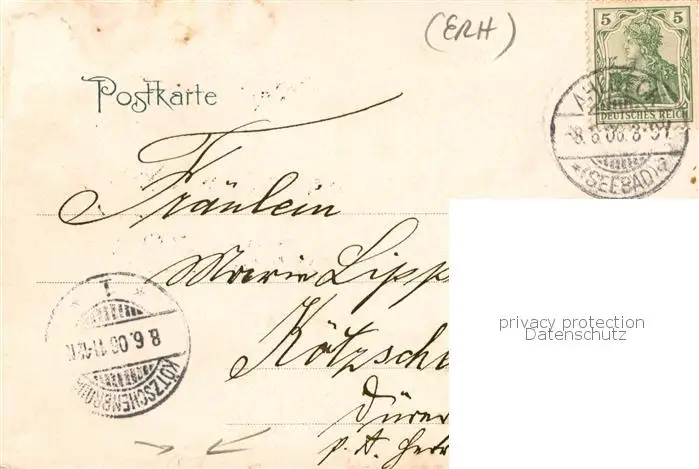 (ERH)
5 5
DEUTSCHES REICH
AHLBECK
8.6.06.8-9V
*(SEEBAD)a
Postkarte
Fräulein
Marie Lipp
Kötzsch
Dürer
p. A. Herr
8.6.06.11-12
KÖTZSCHENBRODA
privacy protection
Datenschutz